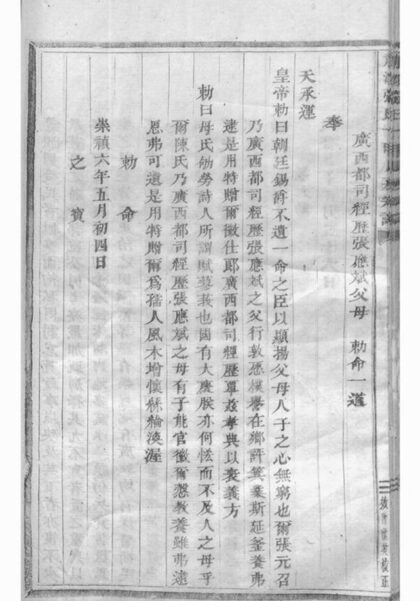 廣西都司經歷張應斌父母　勅命一道
奉
天承運
皇帝勅曰朝廷錫爵不遺一命之臣以顯揚父母人子之心無窮也爾張元召
乃廣西都司經歷張應斌之父行敦應樸譽在鄉評箕裘斯延釜養弗
逮是用特贈爾徵仕郎廣西都司經歷單茲孝典以表義方
勅曰母氏劬勞詩人所謂賦蓼莪也國有大慶朕亦何恡而不及人之母乎
爾陳氏乃廣西都司經歷張應斌之母有子能官徵爾慈教養雖弗逮
恩弗可遺是用特贈爾爲孺人風木增懷絲綸渙渥
勅命
崇禎六年五月初四日
之寶